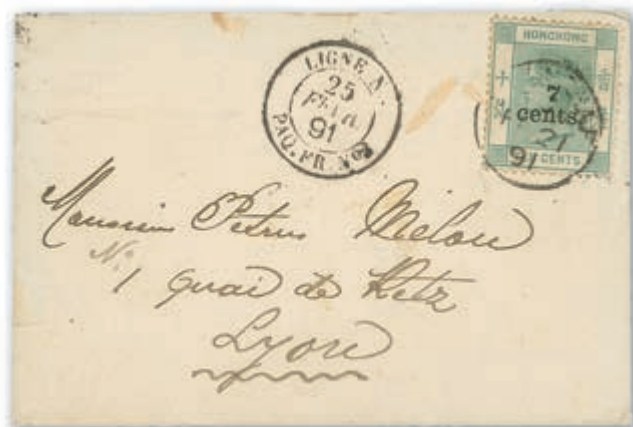 LIGNE N.
25
FEVR.
91
PAQ. FR. No
HONGKONG
7
cents
21
91
CENTS
Monsieur Petrus Melon
No.
1 quai de Retz
Lyon